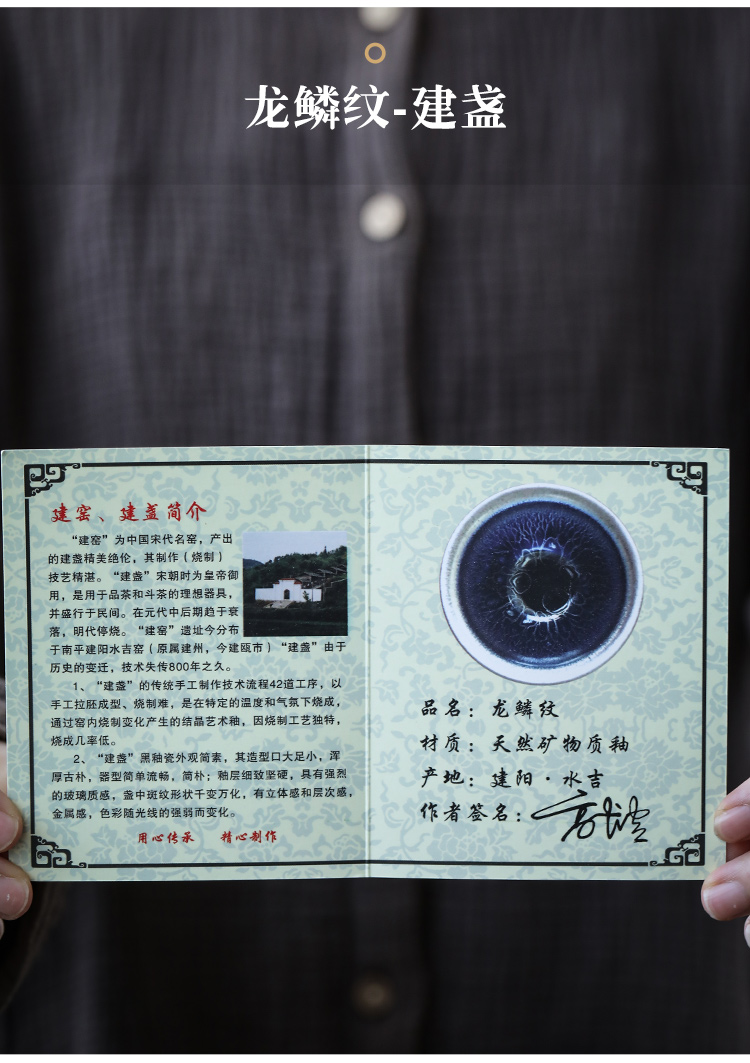 龙鳞纹-建盏
建窑、建盏简介
“建窑”为中国宋代名窑，产出
的建盏精美绝伦，其制作（烧制）
技艺精湛。“建盏”宋朝时为皇帝御
用，是用于品茶和斗茶的理想器具，
并盛行于民间。在元代中后期趋于衰
落，明代停烧。“建窑”遗址今分布
于南平建阳水吉窑（原属建州，今建瓯市）“建盏”由于
历史的变迁，技术失传800年之久。
1、“建盏”的传统手工制作技术流程42道工序，以
手工拉胚成型、烧制难，是在特定的温度和气氛下烧成，
通过窑内烧制变化产生的结晶艺术釉，因烧制工艺独特，
烧成几率低。
2、“建盏”黑釉瓷外观简素，其造型口大足小，浑
厚古朴，器型简单流畅，简朴；釉层细致坚硬，具有强烈
的玻璃质感，盏中斑纹形状千变万化，有立体感和层次感，
金属感，色彩随光线的强弱而变化。
用心传承 精心制作
品名：龙鳞纹
材质：天然矿物质釉
产地：建阳·水吉
作者签名：